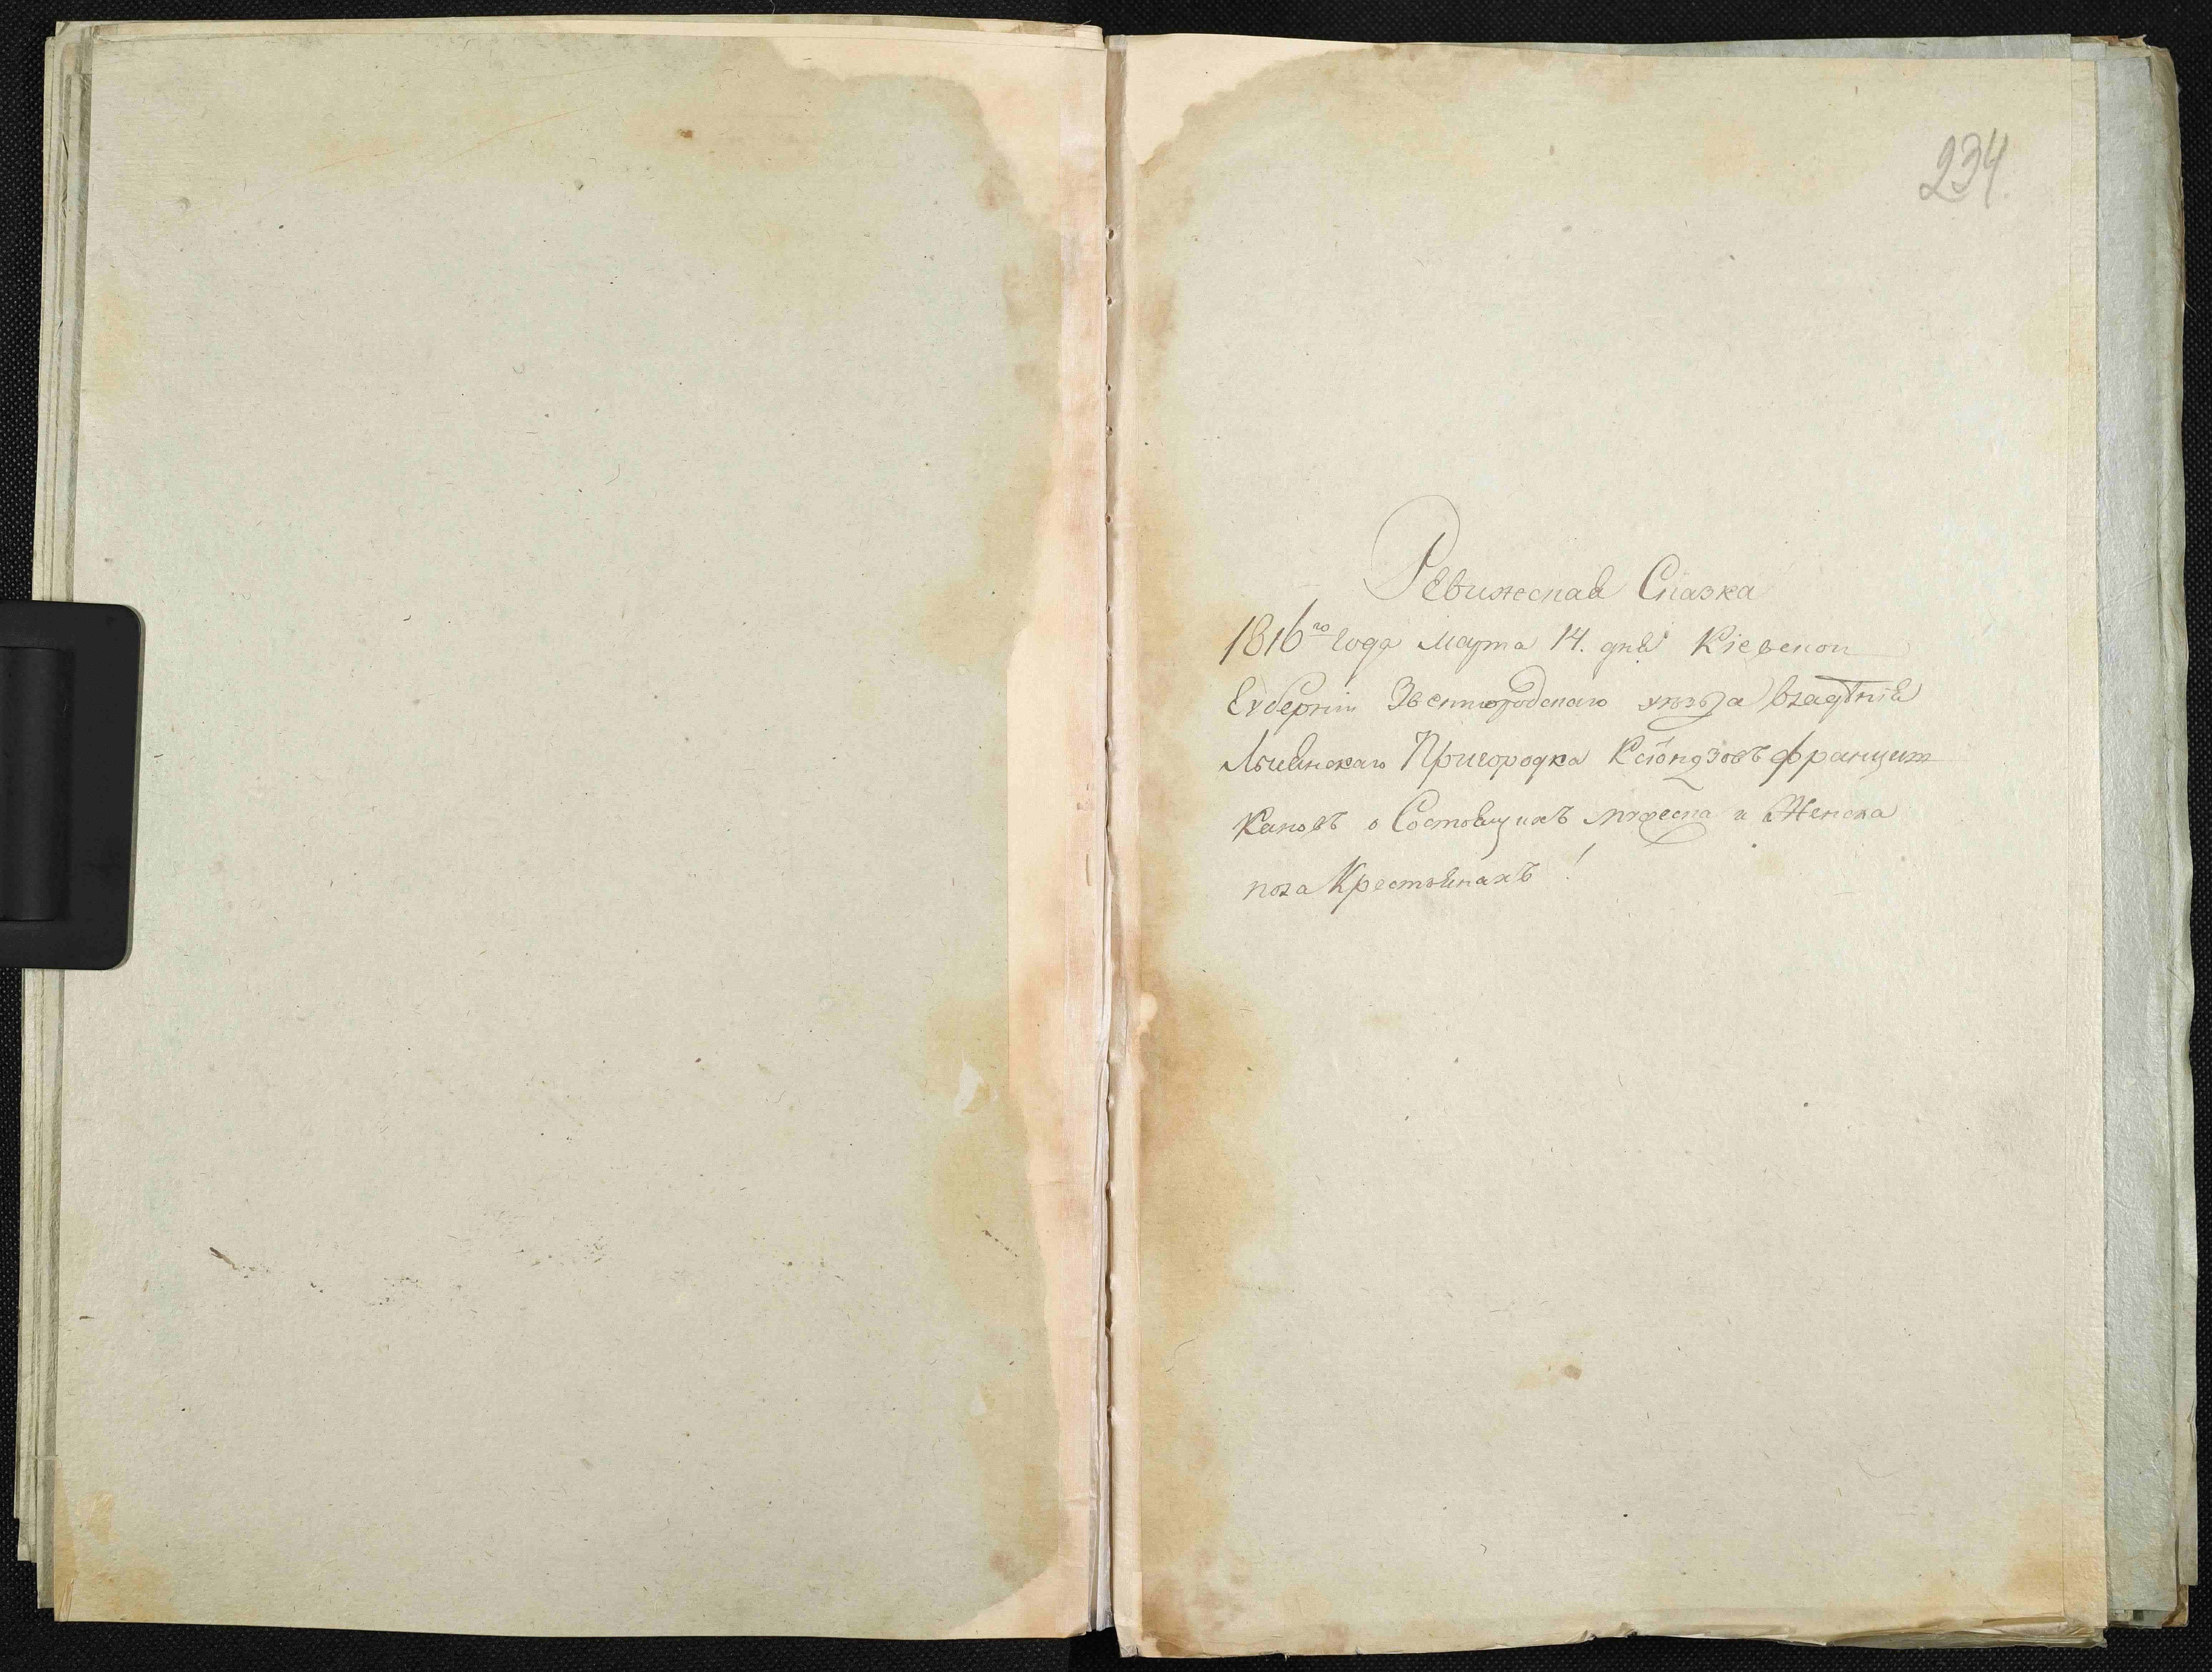 234
Ревижеская Сказка
1816го года марта 14. дня Кіевской
Губерніи Звенигородскаго уѣзда владѣнія
Лысянскаго Пригородка Ксіондзовъ францыш
кановъ о Состоящихъ мужеска и Женска
пола Крестьянахъ!